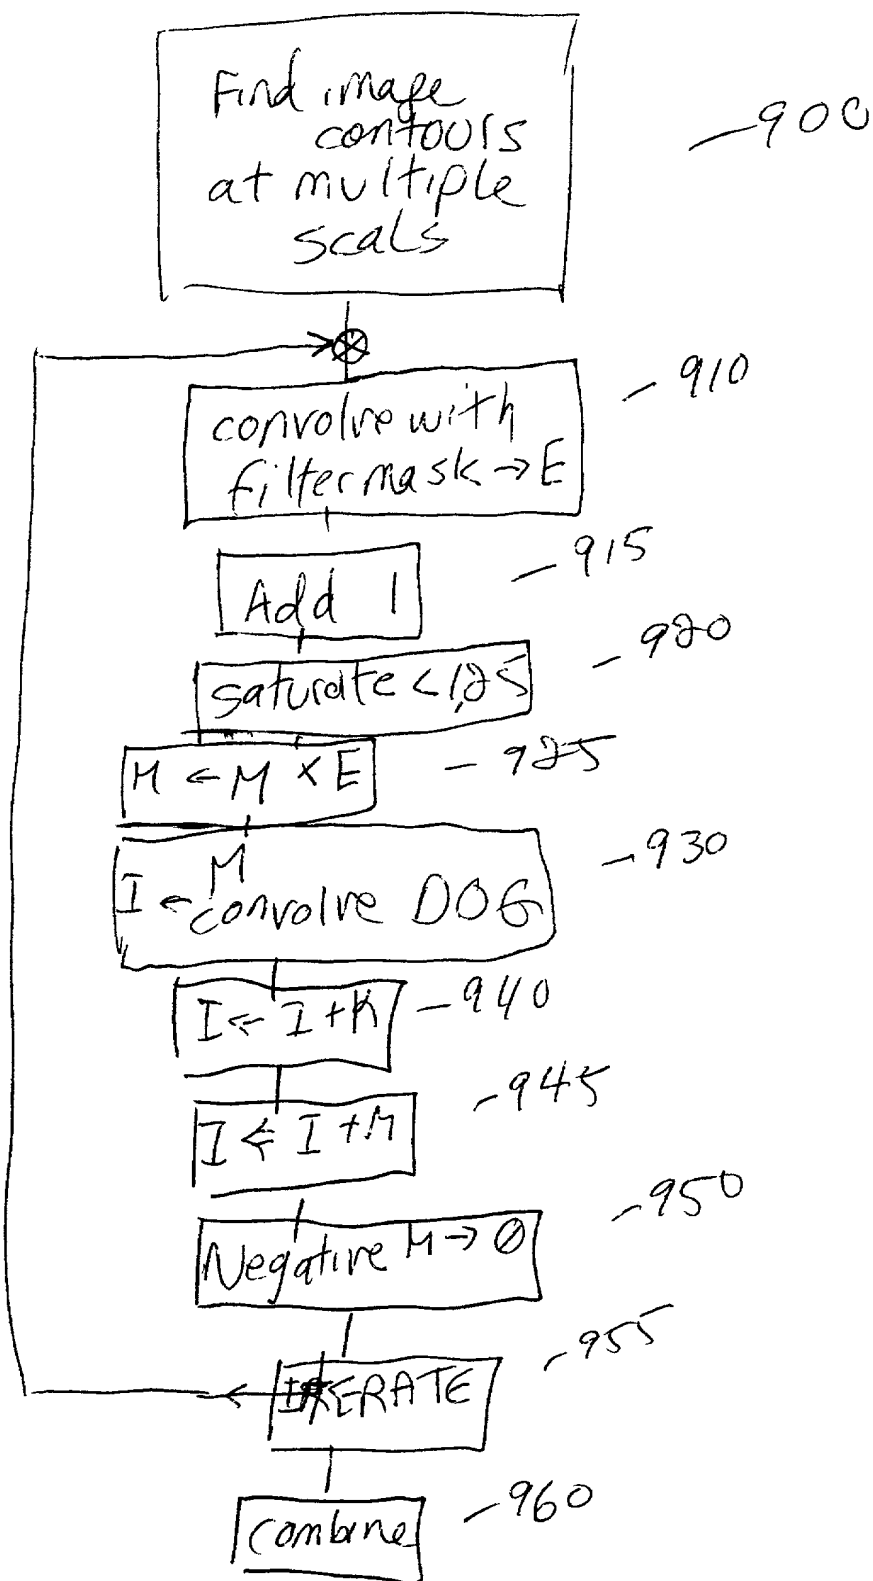 Find image
contours
at multiple
scals
900
convolve with
filter mask → E
910
Add 1
915
saturate < 1,25
920
M ← M × E
925
M
I ← convolve DOG
930
I ← I + K
940
I ← I + M
945
Negative M → Ø
950
ITERATE
955
combine
960